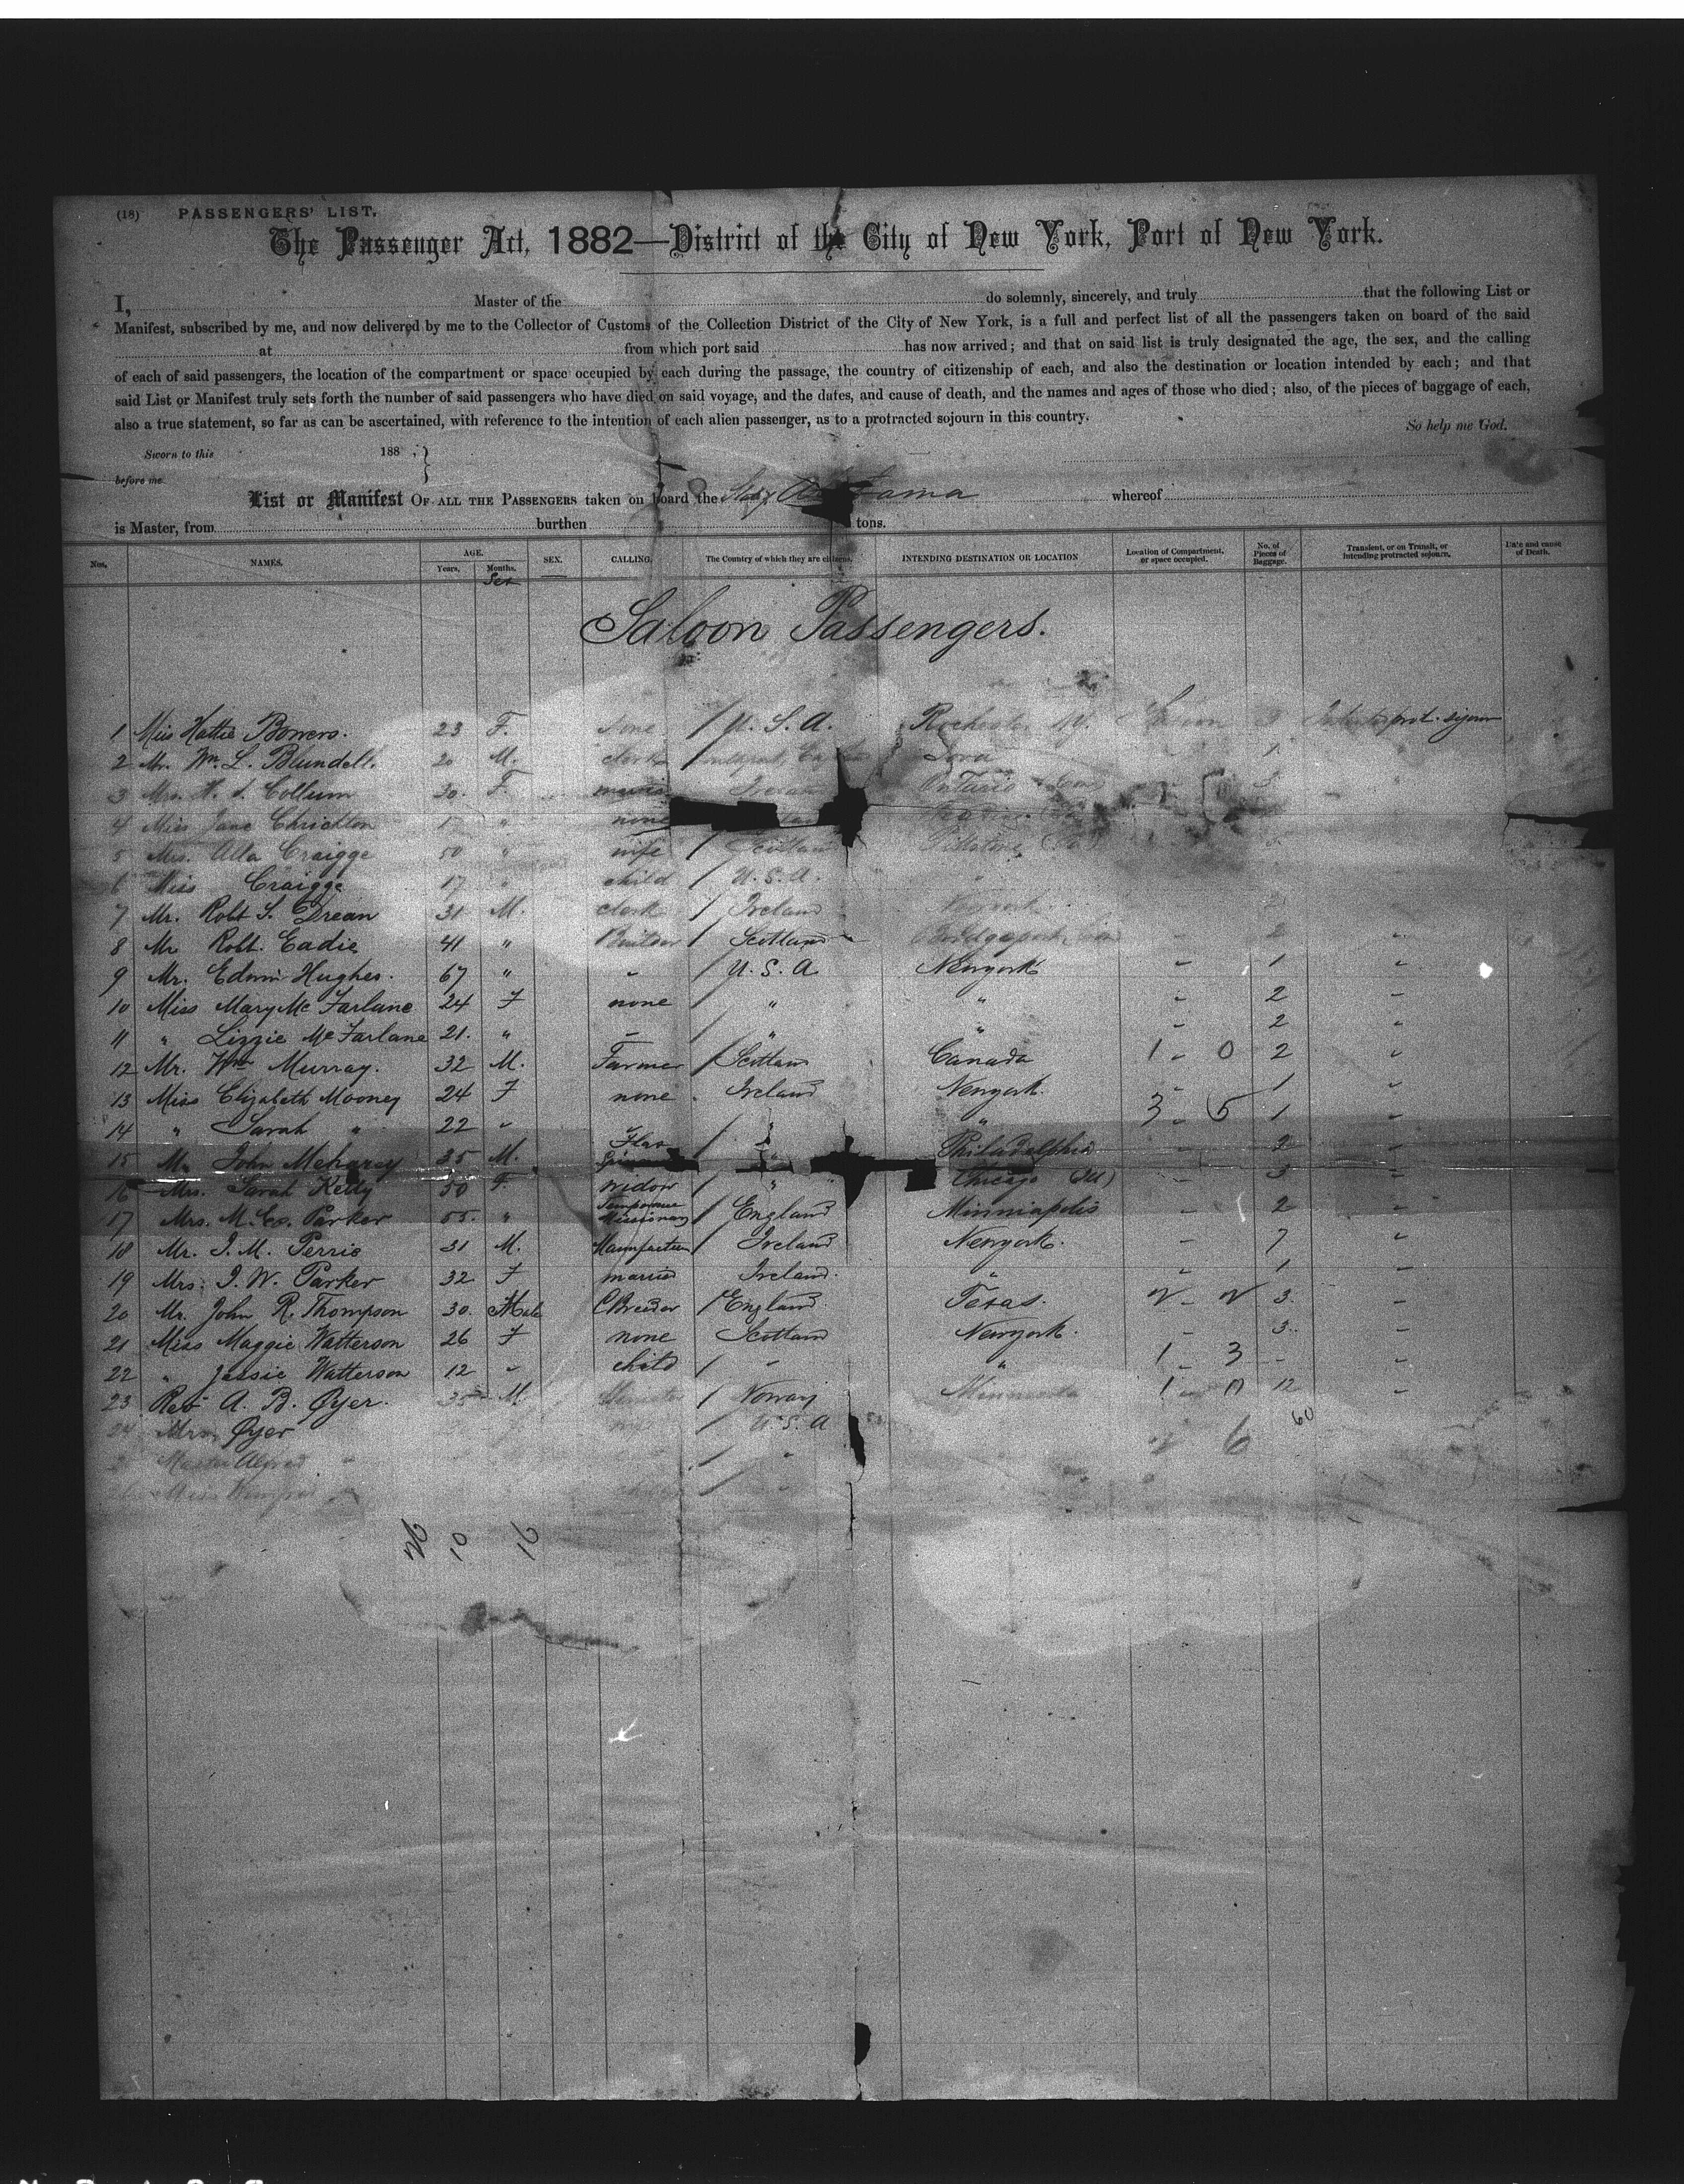 (18) PASSENGERS' LIST.
The Passenger Act, 1882—District of the City of New York, Port of New York.
I, Master of the do solemnly, sincerely, and truly that the following List or
Manifest, subscribed by me, and now delivered by me to the Collector of Customs of the Collection District of the City of New York, is a full and perfect list of all the passengers taken on board of the said
at from which port said has now arrived; and that on said list is truly designated the age, the sex, and the calling
of each of said passengers, the location of the compartment or space occupied by each during the passage, the country of citizenship of each, and also the destination or location intended by each; and that
said List or Manifest truly sets forth the number of said passengers who have died on said voyage, and the dates, and cause of death, and the names and ages of those who died; also, of the pieces of baggage of each,
also a true statement, so far as can be ascertained, with reference to the intention of each alien passenger, as to a protracted sojourn in this country. So help me God.
Sworn to this 188 ,}
before me
List or Manifest OF ALL THE PASSENGERS taken on board the whereof
is Master, from burthen tons.
Nos. NAMES. AGE. Years. Months. SEX. CALLING. The Country of which they are citizens. INTENDING DESTINATION OR LOCATION Location of Compartment, or space occupied. No. of Pieces of Baggage. Transient, or on Transit, or intending protracted sojourn. Date and cause of Death.
Sex
Saloon Passengers.
1 Miss Hattie Bowers. 23 F. none / U.S.A. Rochester N.Y. Saloon 3 prot. sijourn
2 Mr. Wm. L. Blundell. 20 M. clerk 1
3 Mrs. Collum 30. F. Ontario
4 Miss Jane Chrichton " none
5 Mrs. Alla Craigge 50 " wife / Scotland
6 Miss Craigge 17 " child / U.S.A. "
7 Mr. Robt S. Drean 31 M. clerk / Ireland Newyork
8 Mr Robt. Eadie 41 " Builder / Scotland Bridgeport - 2 "
9 Mr. Edwin Hughes. 67 " - / U.S.A Newyork - 1 "
10 Miss Mary McFarlane 24 F none / " " - 2 -
11 " Lizzie McFarlane 21. " - / " " - 2 "
12 Mr. Wm Murray. 32 M. Farmer / Scotland Canada 1 - 0 2 "
13 Miss Elizabeth Mooney 24 F none Ireland Newyork. - 1 "
14 " Sarah " 22 - - / " " 3 - 5 1 -
15 Mr. John Meharey 35 M. Flax / " Philadelphia - 2 -
16 Mrs. Sarah Kelly 50 F. widow / " " Chicago (Ill) - 3 -
17 Mrs. M. Parker 55. " Temperance Missionary / England Minniapolis - 2 -
18 Mr. J. M. Perrie 31 M. Manufacturer / Ireland Newyork. - 7 -
19 Mrs. J. W. Parker 32 F married Ireland. " - 1 -
20 Mr. John R. Thompson 30. Male / England Texas. 2 - 2 3 -
21 Miss Maggie Watterson 26 F none Scotland Newyork. - 3. -
22 " Jessie Watterson 12 - child / - " 1 - 3 - -
23 Rev A. B. Øyer. 35 M. Minister / Norway Minnesota 1 - 0 12 -
24 Mrs Øyer / U.S.A 6 60
Master Alfred " / "
Miss child /
26 10 16